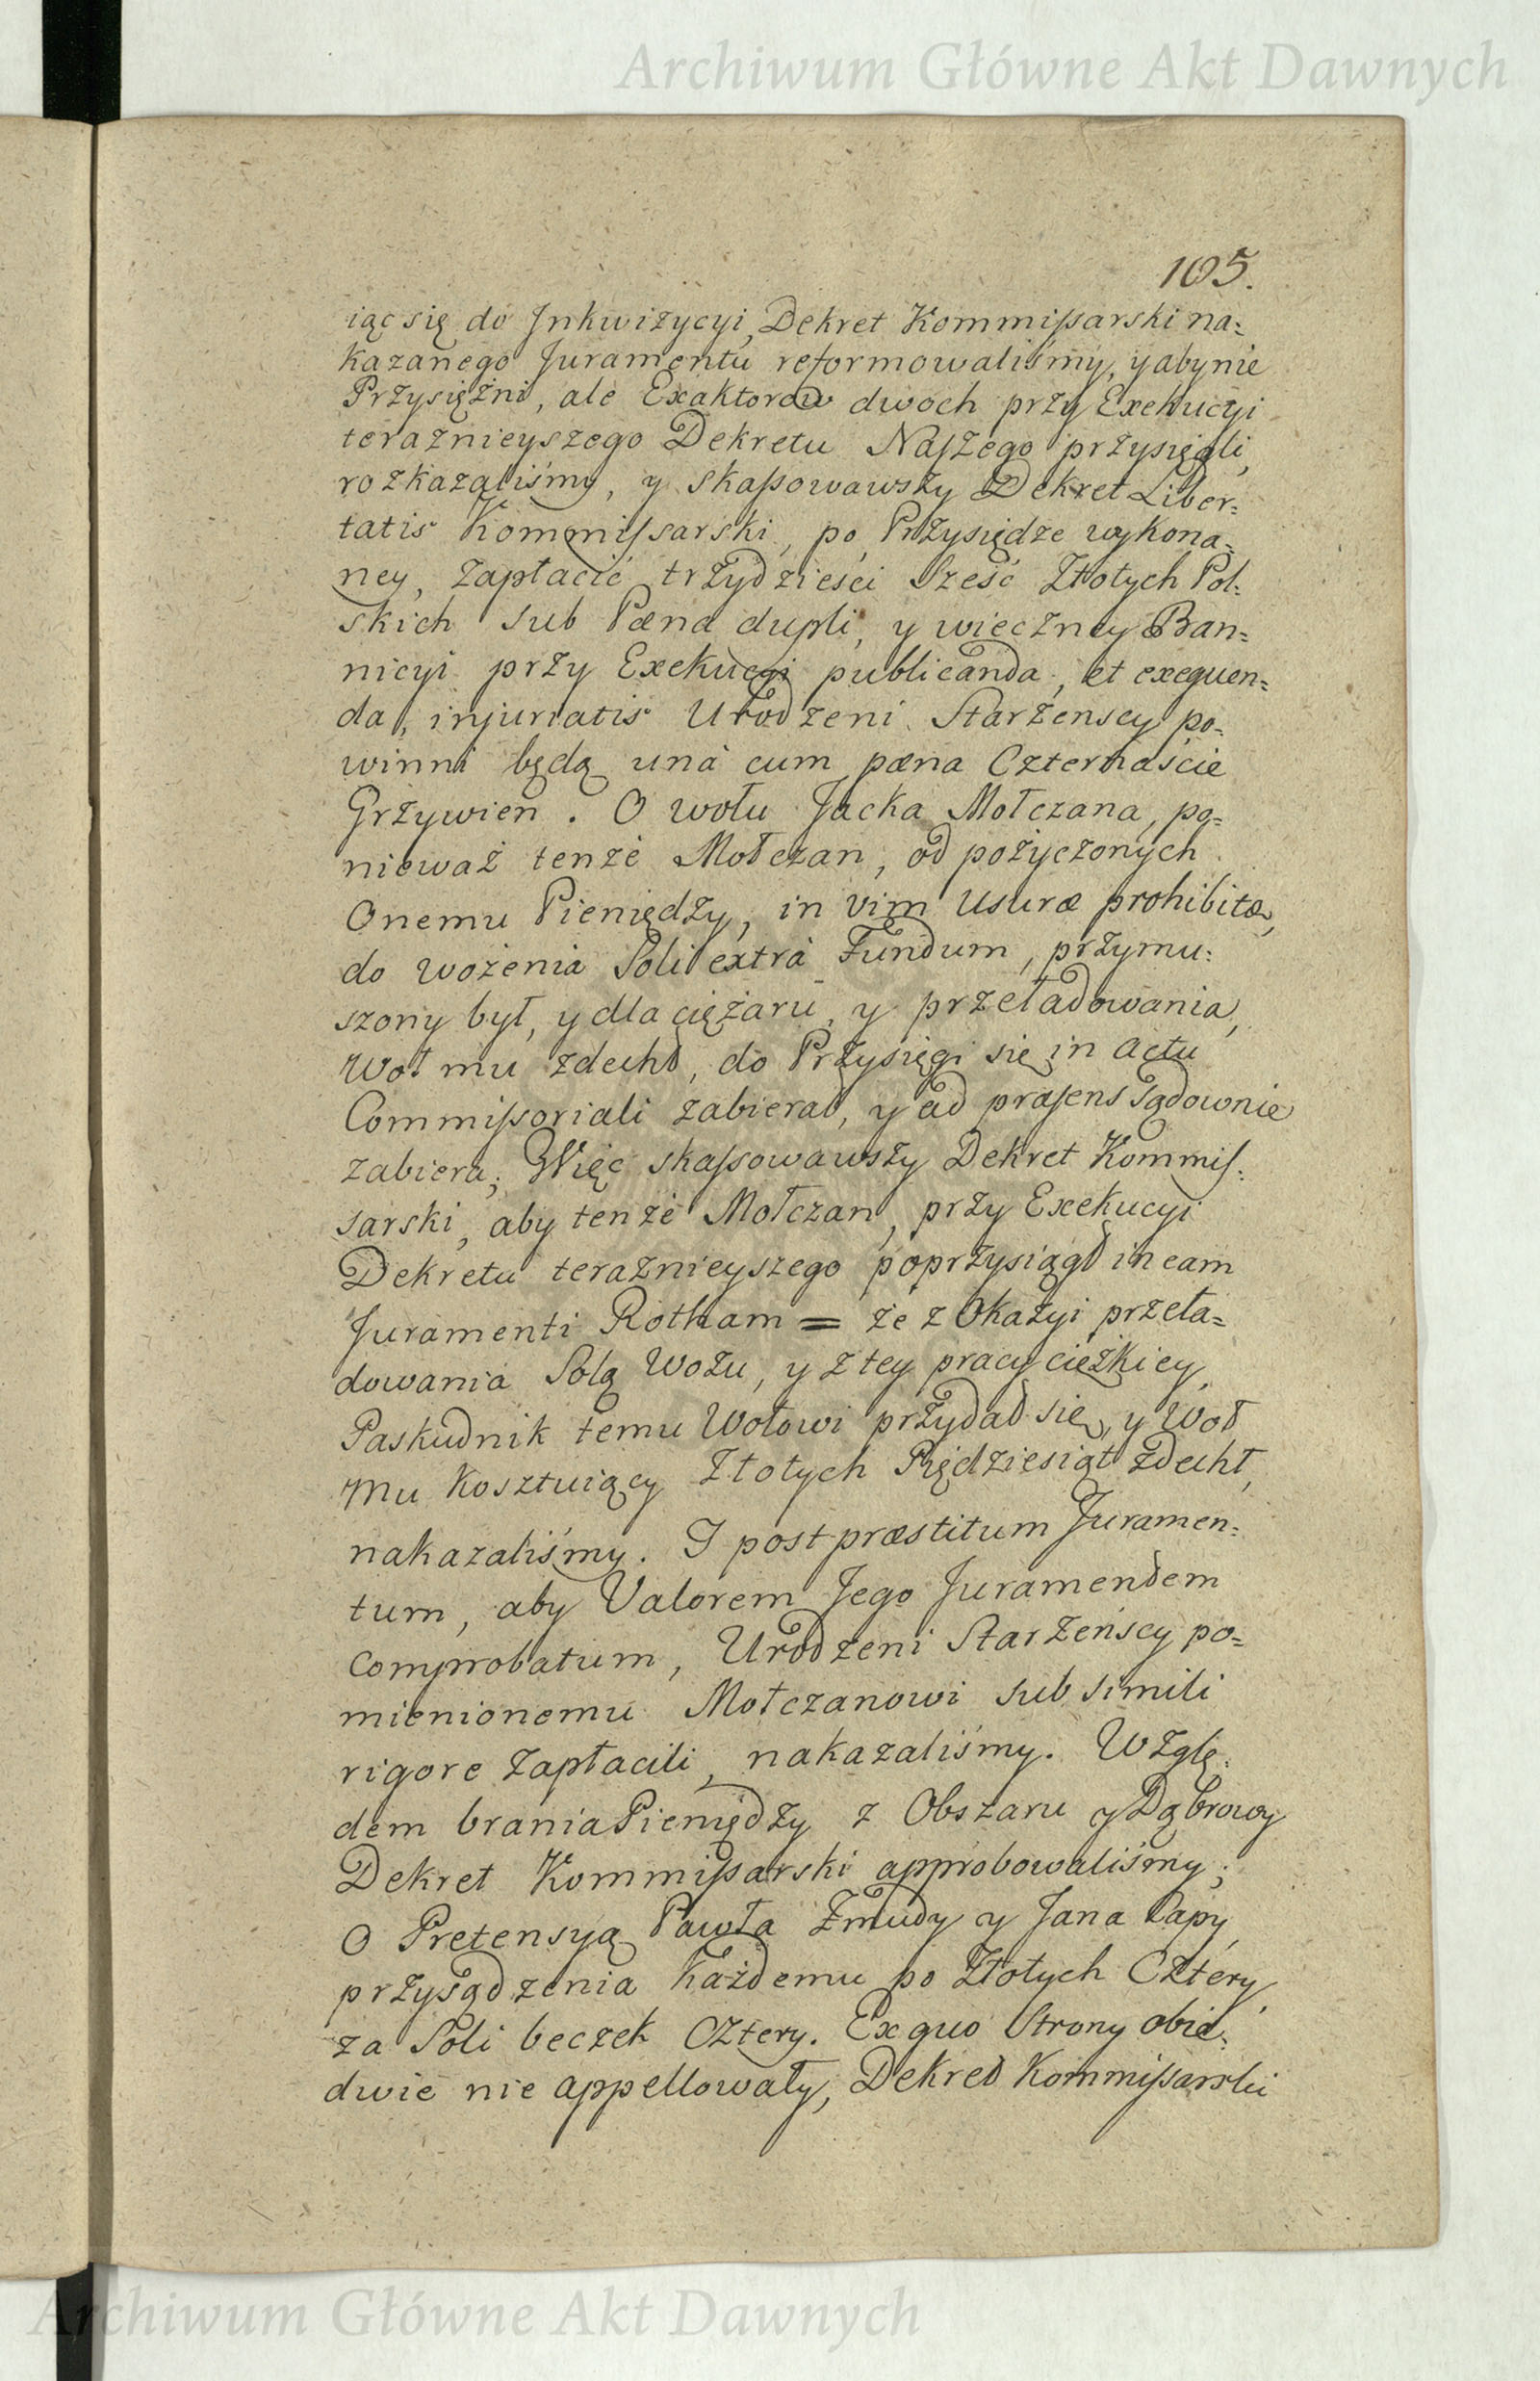 Archiwum Główne Akt Dawnych
105.
iąc się do Jnkwizycyi, Dekret Kommissarski na=
kazanego Juramentu reformowaliśmy, y aby nie
Przysiężni, ale Exaktorow dwoch przy Exekucyi
teraznieyszego Dekretu Naszego przysięgli,
rozkazaliśmy, y skassowawszy Dekret Liber=
tatis Kommissarski, po Przysiędze wykona=
ney, zapłacić trzydzieści sześć Złotych Pol=
skich sub Pœna dupli, y wieczney Ban=
nicyi przy Exekucyi publicanda, et exequen=
da, injuriatis Urodzeni Starzenscy po=
winni będą unà cum pœna Czternaście
Grzywien. O wołu Jacka Mołczana, po=
nieważ tenże Mołczan, od pożyczonych
Onemu Pieniędzy, in vim usuræ prohibitæ,
do wożenia Soli extrà Fundum, przymu=
szony był, y dla ciężaru, y przeładowania,
Woł mu zdechł, do Przysięgi się in actu
Commissoriali zabierał, y ad præsens sądownie
zabiera; Więc skassowawszy Dekret Kommis=
sarski, aby tenże Mołczan, przy Exekucyi
Dekretu teraznieyszego poprzysiągł in eam
Juramenti Rotham = że z Okazyi przeła=
dowania Solą Wozu, y z tey pracy cięzkiey,
Paskudnik temu Wołowi przydał się, y Woł
mu kosztuiący Złotych Piędziesiąt zdechł,
nakazaliśmy. I post præstitum Juramen=
tum, aby Valorem Jego Juramendem
comprobatum, Urodzeni Starzeńscy po=
mienionemu Mołczanowi sub simili
rigore zapłacili, nakazaliśmy. Wzglę=
dem brania Pieniędzy z Obszaru y Dąbrowy
Dekret Kommissarski approbowaliśmy;
O Pretensyą Pawła Żmudy y Jana Łapy,
przysądzenia każdemu po Złotych Cztery,
za Soli beczek Cztery. Ex quo Strony obie=
dwie nie appellowały, Dekret Kommissarski
Archiwum Główne Akt Dawnych